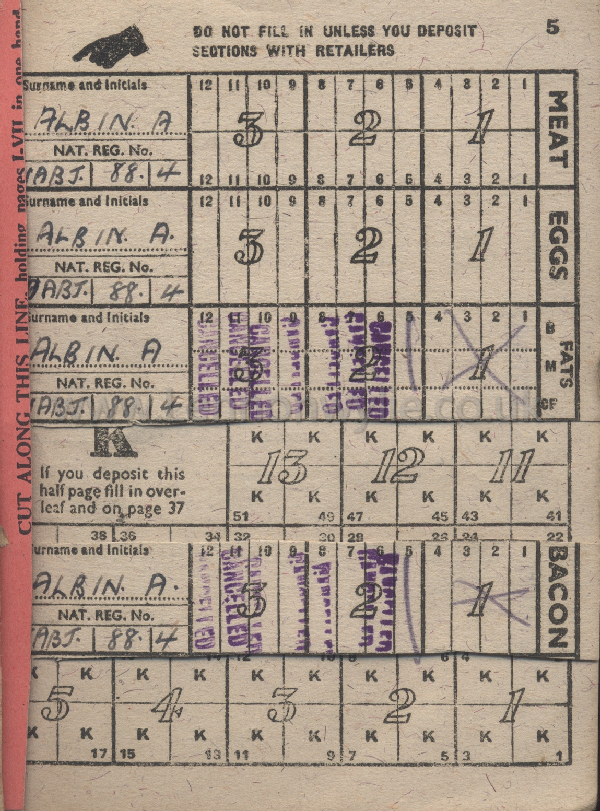 DO NOT FILL IN UNLESS YOU DEPOSIT
SECTIONS WITH RETAILERS
5
CUT ALONG THIS LINE, holding pages I-VII in one hand
Surname and Initials 12 11 10 9 8 7 6 5 4 3 2 1
ALBIN. A 3 2 1 MEAT
NAT. REG. No.
ABJ. 88. 4 12 11 10 9 8 7 6 5 4 3 2 1
Surname and Initials 12 11 10 9 8 7 6 5 4 3 2 1
ALBIN. A. 3 2 1 EGGS
NAT. REG. No.
ABJ. 88. 4
Surname and Initials 12 11 10 9 8 7 6 5 4 3 2 1
ALBIN. A 3 2 1 FATS
B
M
CF
CANCELLED CANCELLED CANCELLED CANCELLED CANCELLED CANCELLED CANCELLED
NAT. REG. No.
ABJ. 88. 4
K
If you deposit this
half page fill in over-
leaf and on page 37
K K K K K K
13 12 11
K K K K K K
51 49 47 45 43 41
38 36 34 32 30 28 26 24 22
Surname and Initials 12 11 10 9 8 7 6 5 4 3 2 1
ALBIN. A. 3 2 1 BACON
CANCELLED CANCELLED CANCELLED CANCELLED CANCELLED CANCELLED CANCELLED
NAT. REG. No.
ABJ. 88. 4
K K K K K K K K K K
5 4 3 2 1
K K K K K K K K K K
17 15 13 11 9 7 5 3 1